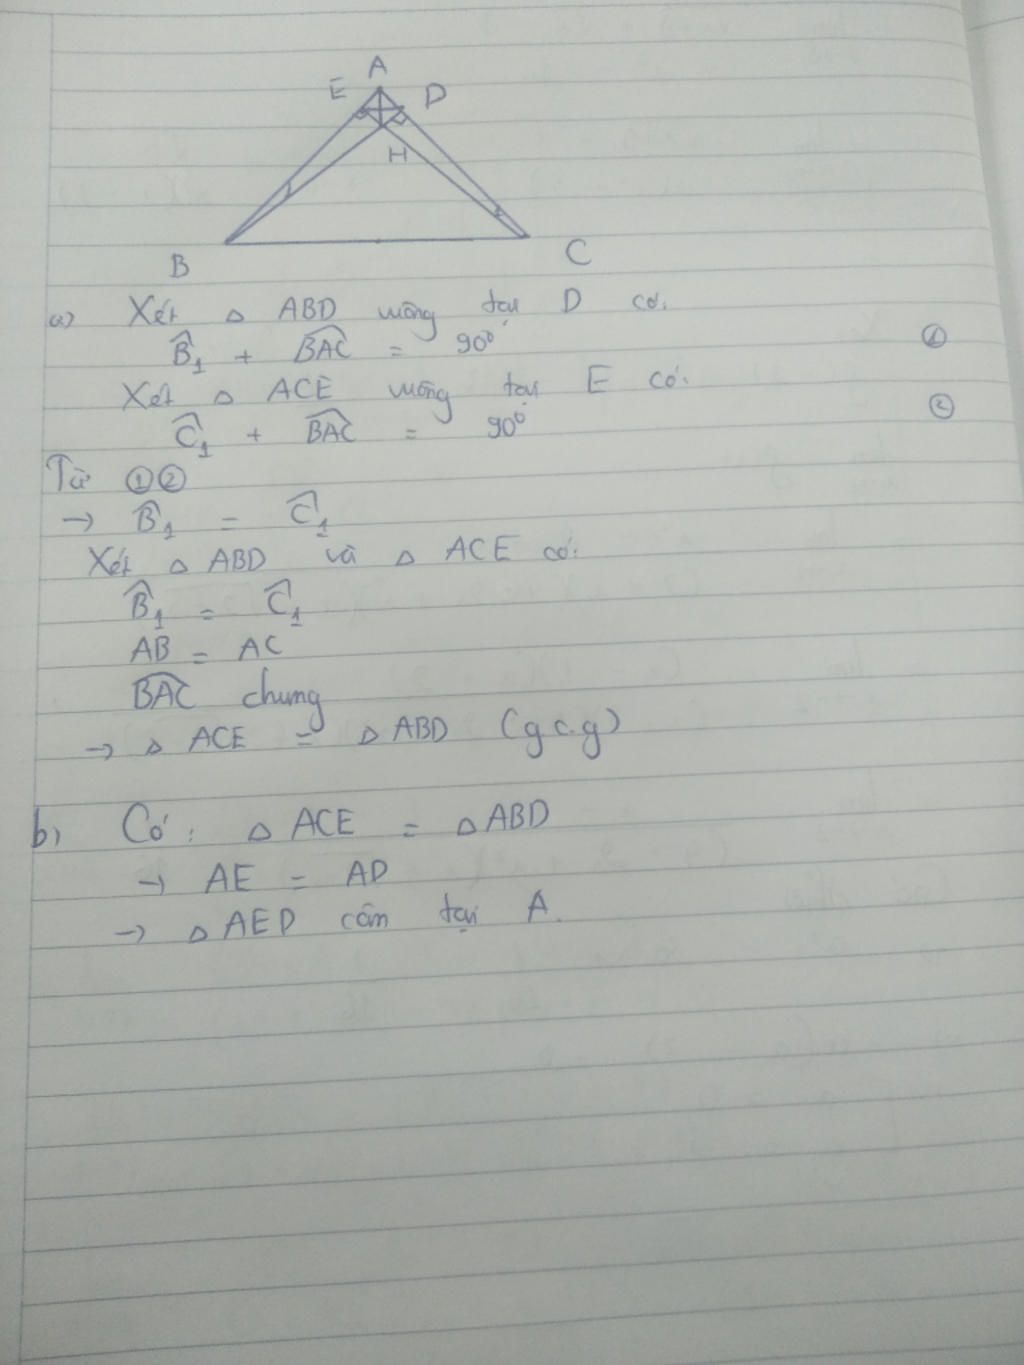 A
E D
H
B C
a) Xét △ ABD vuông tại D có:
B̂₁ + B̂AC = 90⁰ ①
Xét △ ACE vuông tại E có:
Ĉ₁ + B̂AC = 90⁰ ②
Từ ①②
→ B̂₁ = Ĉ₁
Xét △ ABD và △ ACE có:
B̂₁ = Ĉ₁
AB = AC
B̂AC chung
→ △ ACE = △ ABD (g.c.g)
b) Có: △ ACE = △ ABD
→ AE = AD
→ △ AED cân tại A.